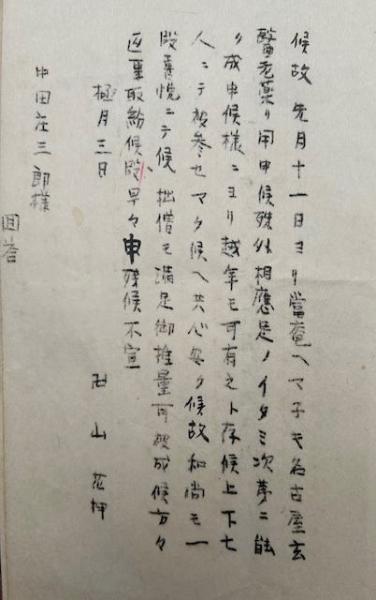 候故先月十一日ヨリ當菴ヘマ子キ名古屋玄
醫老藥ヲ用申候殊外相應足ノイタミ次第ニ能
ク成申候様ニヨリ越年モ可有之ト存候上下七
人ニテ被参セマク候ヘ共心安ク候故和尚モ一
段喜悦ニテ候拙僧モ満足御推量可被成候方々
返事取紛候段早々申残候不宣
極月三日
卍山花押
中田庄三郎様
回答